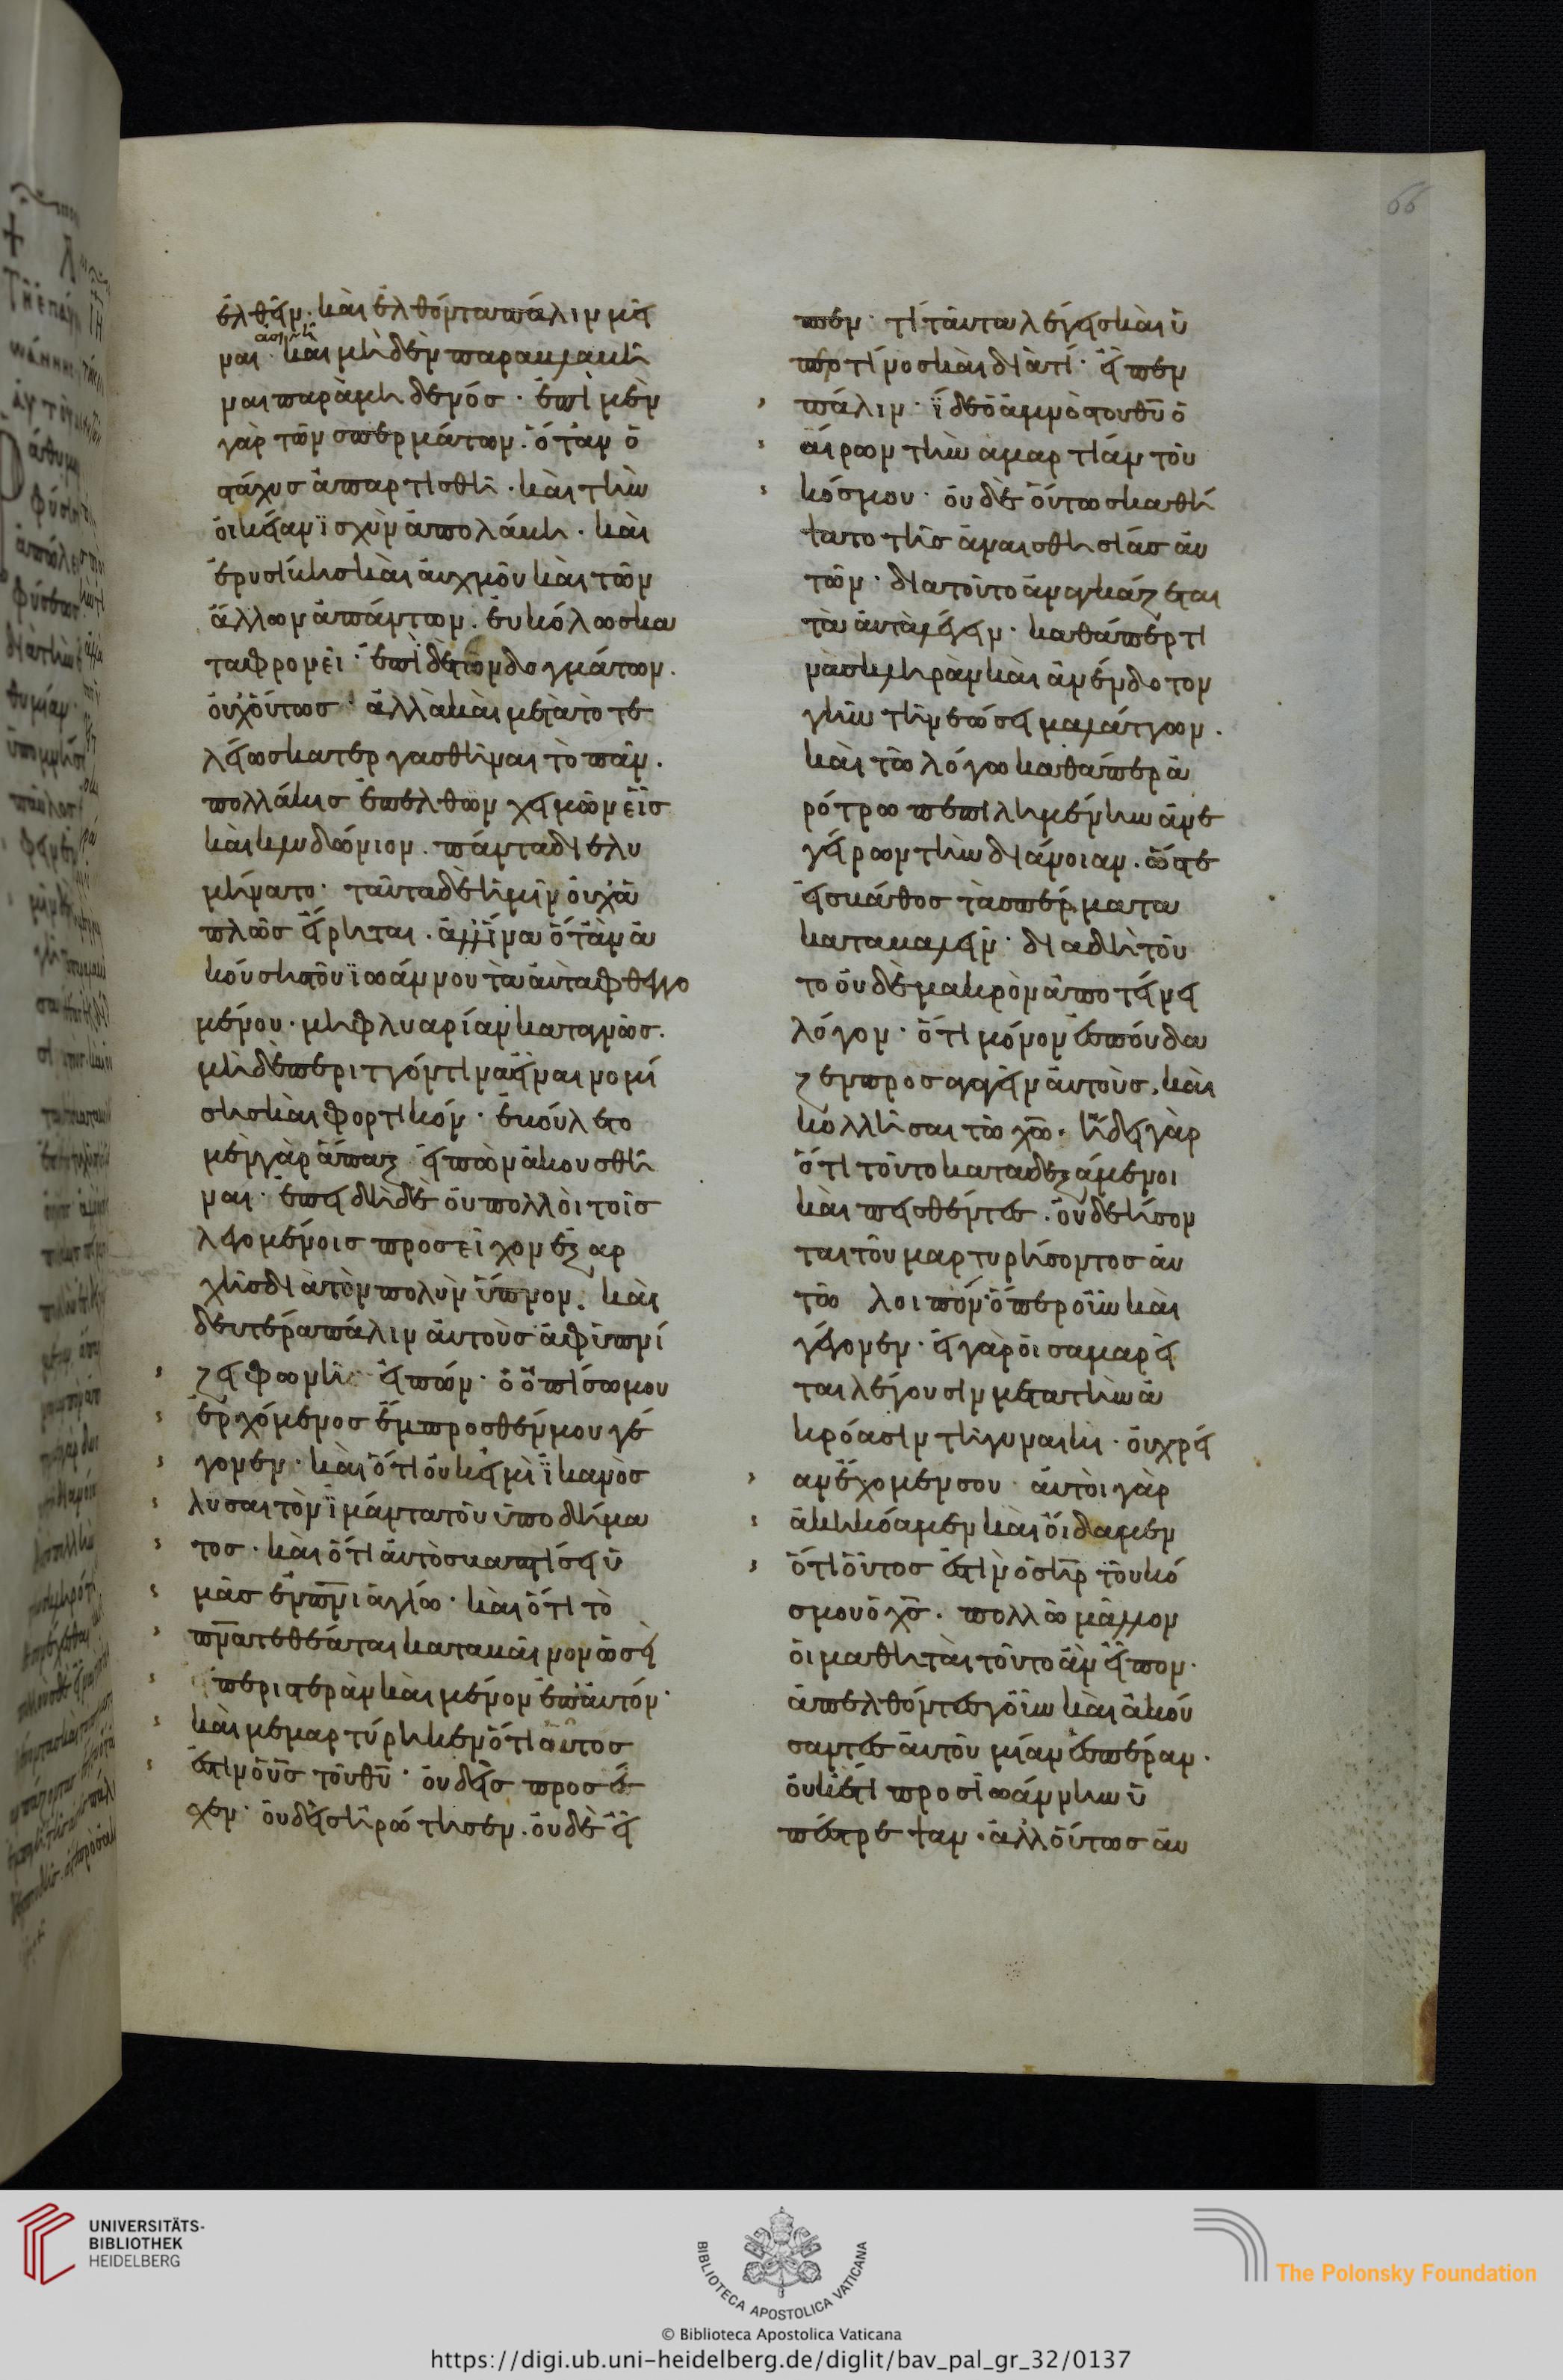 66
ἐλθεῖν· καὶ ἐλθόντα πάλιν μεῖ
ναι ἀσινῆ· καὶ μηδὲν παραβλαβῆ
ναι παρὰ μηδενός· ἐπὶ μὲν
γὰρ τῶν σπερμάτων· ὅταν ὁ
στάχυς ἀπαρτισθῆ· καὶ τὴν
οἰκείαν ἰσχὺν ἀπολάβη· καὶ
ἐρυσίβης καὶ αὐχμοῦ καὶ τῶν
ἄλλων ἁπάντων· εὐκόλως κα
ταφρονεῖ· ἐπὶ δὲ τῶν δογμάτων·
οὐχ οὕτως· ἀλλὰ καὶ μετὰ τὸ τε
λείως κατεργασθῆναι τὸ πᾶν·
πολλάκις ἐπελθὼν χειμὼν εἷς
καὶ κλυδώνιον· πάντα διελυ
μήνατο· ταῦτα δὲ ἡμῖν οὐχ ἁ
πλῶς εἴρηται· ἀλλ' ἵνα ὅταν ἀ
κούσης τοῦ ἰωάννου τὰ αὐτὰ φθεγγο
μένου· μὴ φλυαρίαν καταγνῶς·
μὴ δὲ περιττόν τινα εἶναι νομί
σης καὶ φορτικόν· ἐβούλετο
μὲν γὰρ ἅπαξ εἰπὼν ἀκουσθῆ
ναι· ἐπειδὴ δὲ οὐ πολλοὶ τοῖς
λεγομένοις προσεῖχον ἐξ ἀρ
χῆς διὰ τὸν πολὺν ὕπνον· καὶ
δευτέρα πάλιν αὐτοὺς ἀφυπνί
ζει φωνῆ· εἰπών· ὁ ὀπίσω μου
ἐρχόμενος ἔμπροσθέν μου γέ
γονεν· καὶ ὅτι οὐκ εἰμὶ ἱκανὸς
λῦσαι τὸν ἱμάντα τοῦ ὑποδήμα
τος· καὶ ὅτι αὐτὸς βαπτίσει ὑ
μᾶς ἐν πνι ἁγίω· καὶ ὅτι τὸ
πνα τεθέαται καταβαῖνον ὡσεὶ
περιστερὰν καὶ μένον ἐπ' αὐτόν·
καὶ μεμαρτύρηκεν ὅτι οὗτος
ἐστὶν ὁ υς τοῦ θυ· οὐδεὶς προσέ
σχεν· οὐδεὶς ἠρώτησεν· οὐδὲ εἶ
πεν· τί ταῦτα λέγεις καὶ ὑ
πὲρ τίνος καὶ διὰ τί· εἶπεν
πάλιν· ἴδε ὁ ἀμνὸς τοῦ θυ ὁ
αἴρων τὴν ἁμαρτίαν τοῦ
κόσμου· οὐδὲ οὕτως καθή
ψατο τῆς ἀναισθησίας αὐ
τῶν· διὰ τοῦτο ἀναγκάζεται
τὰ αὐτὰ λέγειν· καθάπερ τι
νὰ σκληρὰν καὶ ἀνένδοτον
γῆν τῆ νεώσει μαλάττων·
καὶ τῶ λόγω καθάπερ ἀ
ρότρω πεπιλημένην ἀνε
γείρων τὴν διάνοιαν· ὥστε
εἰς βάθος τὰ σπέρματα
καταβαλεῖν· διὰ δὴ τοῦ
το οὐδὲ μακρὸν ἀποτείνει
λόγον· ὅτι μόνον ἐσπούδα
ζεν προσαγαγεῖν αὐτοὺς, καὶ
κολλῆσαι τῶ χω· ἤδει γὰρ
ὅτι τοῦτο καταδεξάμενοι
καὶ πεισθέντες· οὐ δεήσον
ται τοῦ μαρτυρήσοντος αὐ
τῶ λοιπόν· ὅπερ οὖν καὶ
γέγονεν· εἰ γὰρ οἱ σαμαρεῖ
ται λέγουσιν μετὰ τὴν ἀ
κρόασιν τῆ γυναικί· οὐ χρεί
αν ἔχομέν σου· αὐτοὶ γὰρ
ἀκηκόαμεν καὶ οἴδαμεν
ὅτι οὗτος ἐστὶν ὁ σηρ τοῦ κό
σμου ὁ χς· πολλῶ μᾶλλον
οἱ μαθηταὶ τοῦτο ἂν εἶπον·
ἀπελθόντες γοῦν καὶ ἀκού
σαντες αὐτοῦ μίαν ἑσπέραν·
οὐκέτι πρὸς ἰωάννην ὑ
πέστρεψαν· ἀλλ' οὕτως αὐ
UNIVERSITÄTS-
BIBLIOTHEK
HEIDELBERG
BIBLIOTECA APOSTOLICA VATICANA
The Polonsky Foundation
© Biblioteca Apostolica Vaticana
https://digi.ub.uni-heidelberg.de/diglit/bav_pal_gr_32/0137